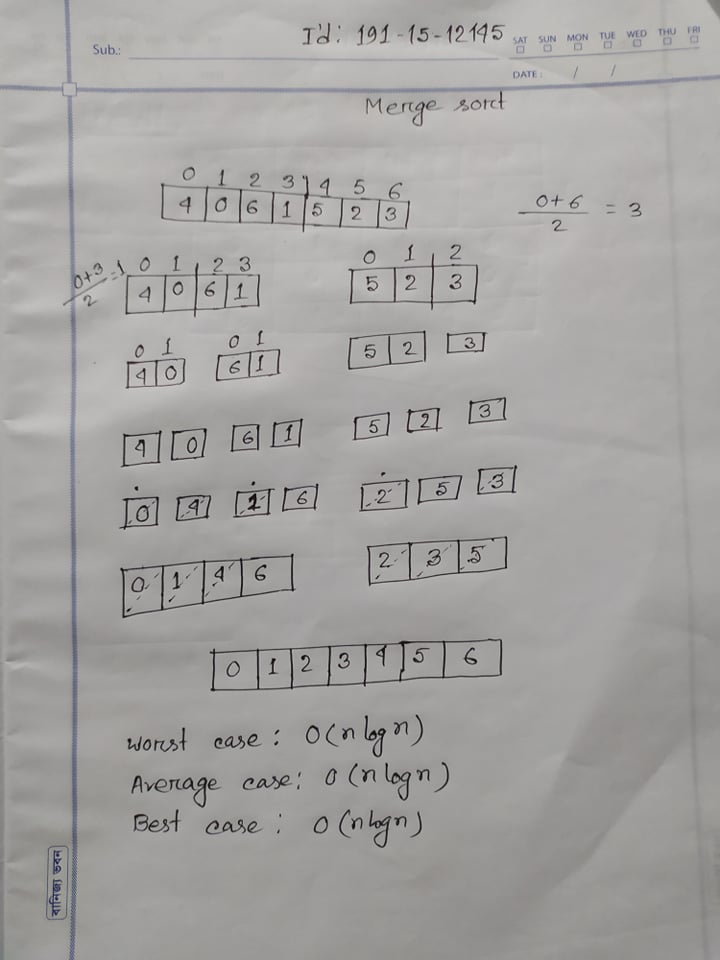 I'd: 191-15-12145
Sub.: SAT SUN MON TUE WED THU FRI
DATE : / /
Merge sort
0 1 2 3 4 5 6
4 0 6 1 5 2 3
0+6/2 = 3
0+3/2 = 1
0 1 2 3 0 1 2
4 0 6 1 5 2 3
0 1 0 1
4 0 6 1 5 2 3
4 0 6 1 5 2 3
0 4 1 6 2 5 3
0 1 4 6 2 3 5
0 1 2 3 4 5 6
Worst case : O(n log n)
Average case: O(n log n)
Best case : O(n log n)
বানিজ্য ভবন